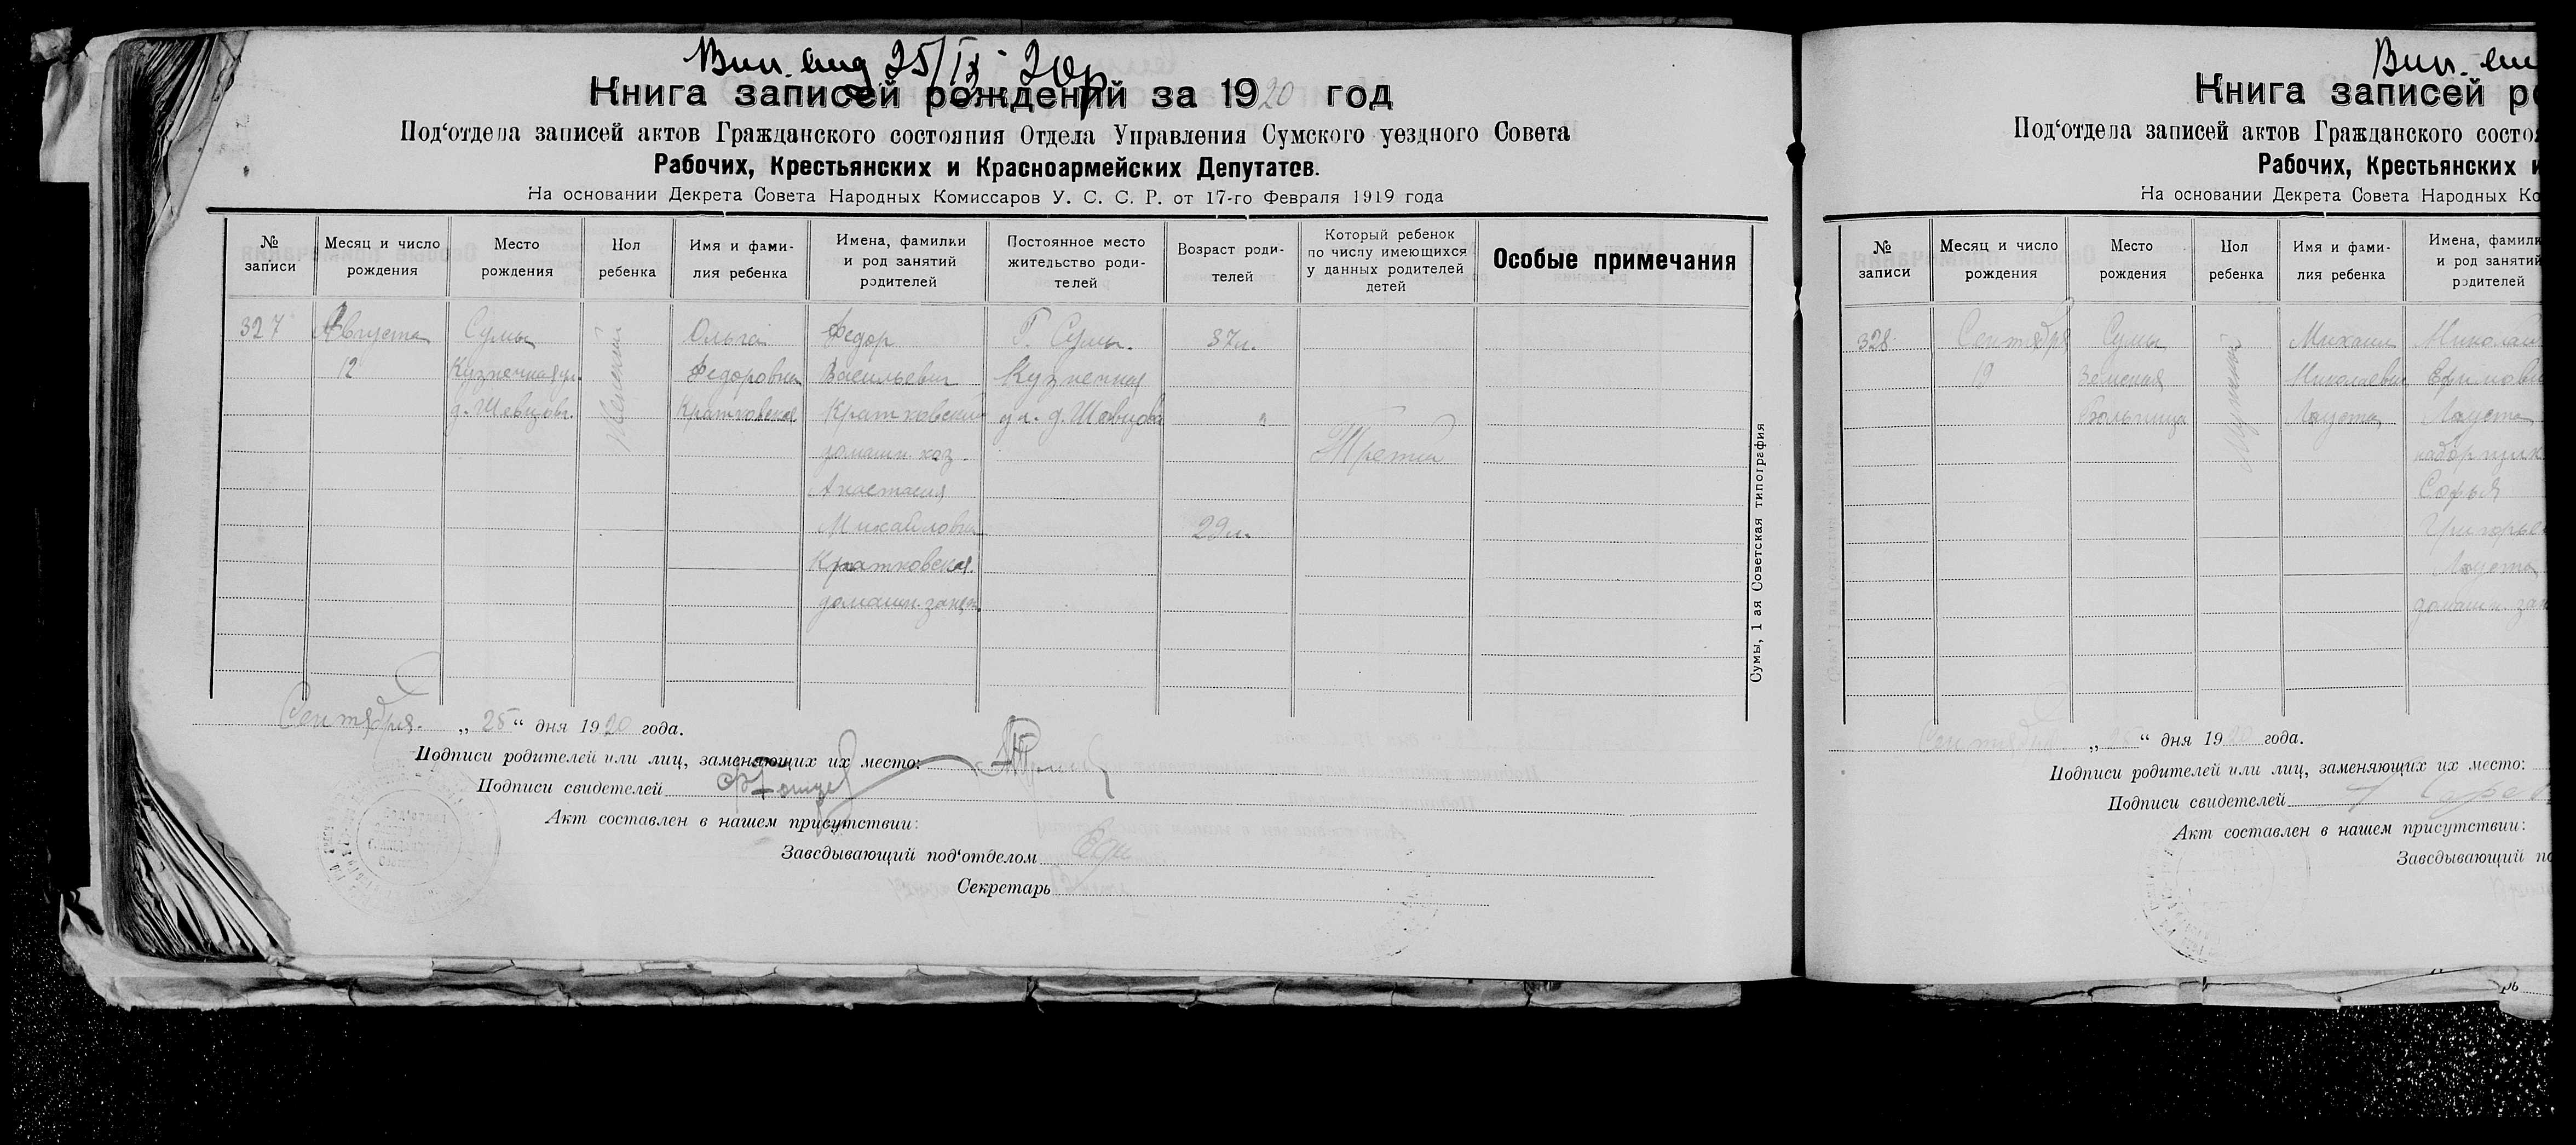 Вип. вид 25/IX 20р
Книга записей рождений за 1920 год
Под‘отдела записей актов Гражданского состояния Отдела Управления Сумского уездного Совета
Рабочих, Крестьянских и Красноармейских Депутатов.
На основании Декрета Совета Народных Комиссаров У. С. С. Р. от 17-го Февраля 1919 года
№ записи
Месяц и число рождения
Место рождения
Пол ребенка
Имя и фами-
лия ребенка
Имена, фамилии
и род занятий
родителей
Постоянное место
жительство роди-
телей
Возраст роди-
телей
Который ребенок
по числу имеющихся
у данных родителей
детей
Особые примечания
327
Августа
12
Сумы
Кузнечная ул.
д. Шевцова
Женский
Ольга
Федоровна
Кратковская
Федор
Васильевич
Кратковский
домашн. хоз.
Анастасия
Михайловна
Кратковская
домашн. занят.
Г. Сумы.
Кузнечная
ул. д. Шевцова
37 л.
29 л.
Третий
Сумы, 1 ая Советская типография
Сентября „ 25 “ дня 1920 года.
Подписи родителей или лиц, заменяющих их место:
Подписи свидетелей
Акт составлен в нашем присутствии:
Заведывающий под‘отделом
Секретарь
Вип. ви
Книга записей ро
Под‘отдела записей актов Гражданского состоя
Рабочих, Крестьянских и
На основании Декрета Совета Народных Ко
№ записи
Месяц и число рождения
Место рождения
Пол ребенка
Имя и фами-
лия ребенка
Имена, фамили
и род занятий
родителей
328
Сентября
19
Сумы
Земская
Больница
Михаил
Николаевич
Лоуста
Николай
Ефимови
Лоуста
наборщик
Софья
Григорье
Лоуста
домашн. зан
Сентября „ 25 “ дня 1920 года.
Подписи родителей или лиц, заменяющих их место:
Подписи свидетелей
Акт составлен в нашем присутствии:
Заведывающий по